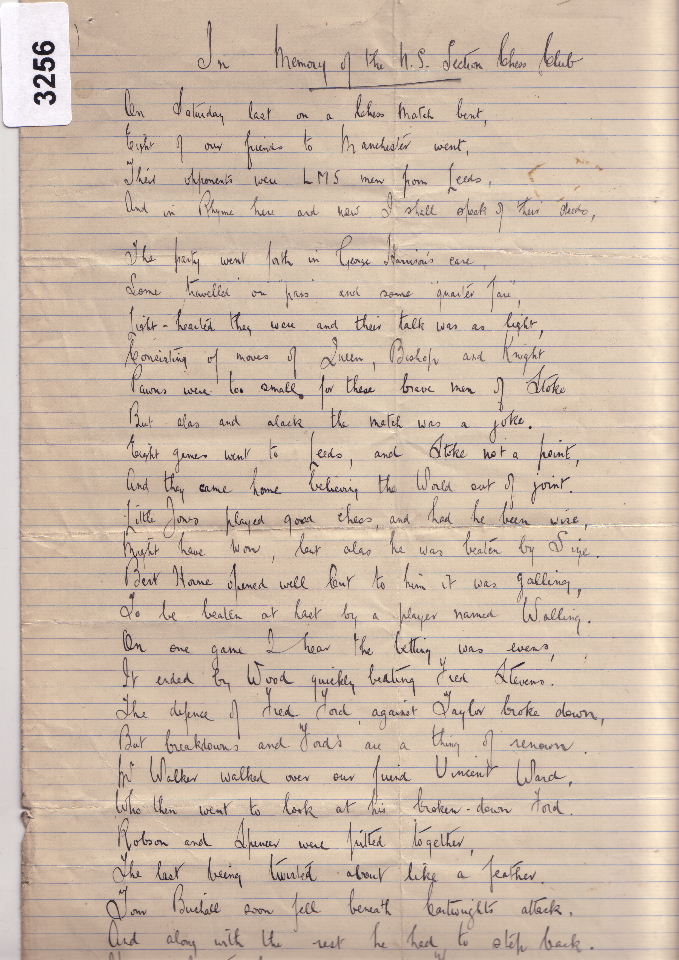 3256
In Memory of the N.S. Section Chess Club
On Saturday last on a Chess Match bent,
Eight of our friends to Manchester went,
Their opponents were LMS men from Leeds,
And in Rhyme here and now I shall speak of their deeds,
The party went forth in George Harrison's care,
Some travelled on "pass" and some "quarter fare",
Light-hearted they were and their talk was as light,
Consisting of moves of Queen, Bishop and Knight
Pawns were too small for these brave men of Stoke
But alas and alack the match was a joke.
Eight games went to Leeds, and Stoke not a point,
And they came home believing the World out of joint.
Little Jones played good chess, and had he been wise,
Might have won, but alas he was beaten by Size.
Bert Horne opened well but to him it was galling,
To be beaten at last by a player named Walling.
On one game I hear the betting was evens,
It ended by Wood quickly beating Fred Stevens.
The defence of Fred Ford, against Taylor broke down,
But breakdowns and Ford's are a thing of renown.
Mr Walker walked over our friend Vincent Ward,
Who then went to look at his broken-down Ford.
Robson and Spencer were pitted together,
The last being twisted about like a feather.
Tom soon fell beneath Cartwrights attack,
And along with the rest he had to step back.